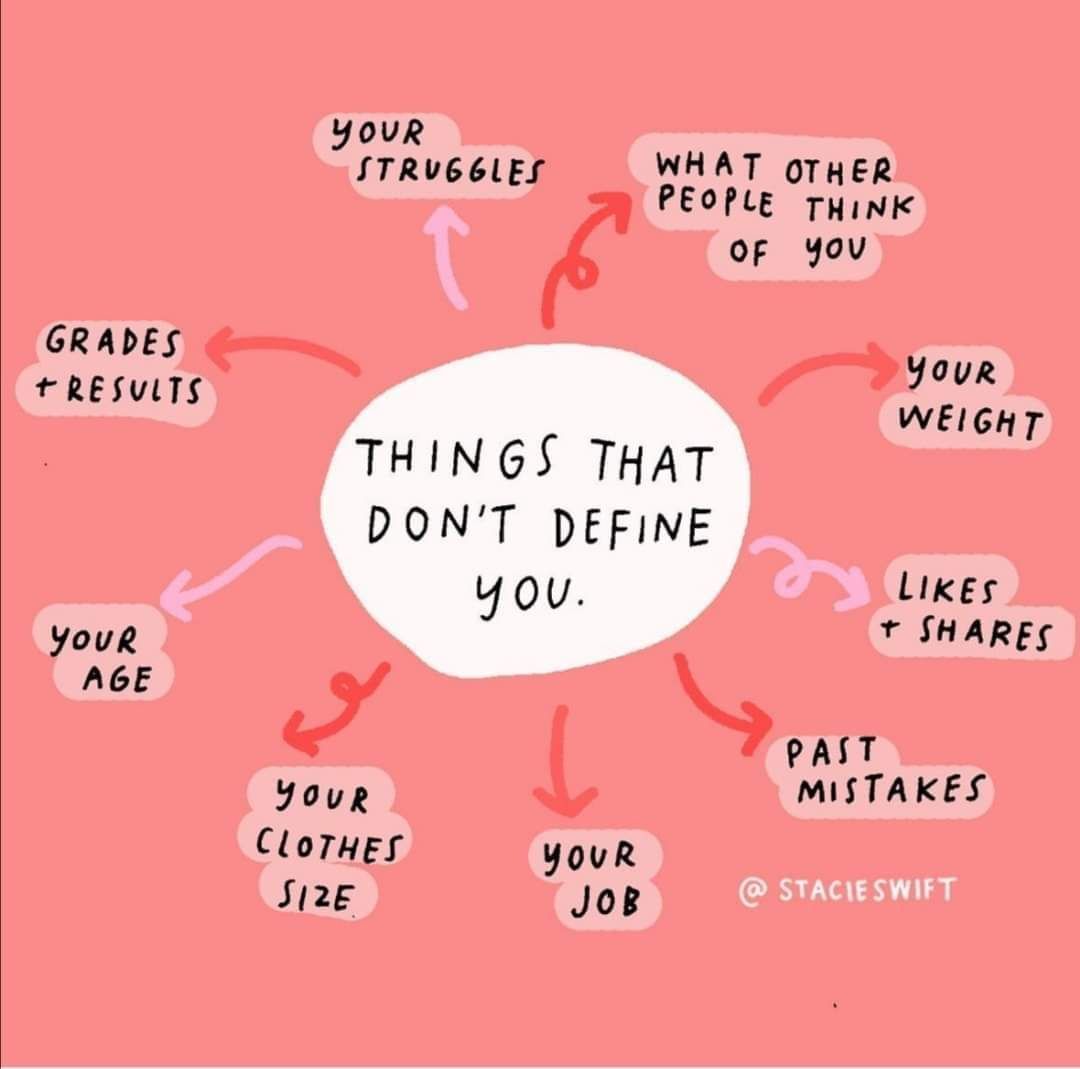 THINGS THAT
DON'T DEFINE
YOU.
YOUR
STRUGGLES
WHAT OTHER
PEOPLE THINK
OF YOU
YOUR
WEIGHT
LIKES
+ SHARES
PAST
MISTAKES
YOUR
JOB
YOUR
CLOTHES
SIZE
YOUR
AGE
GRADES
+ RESULTS
@ STACIESWIFT